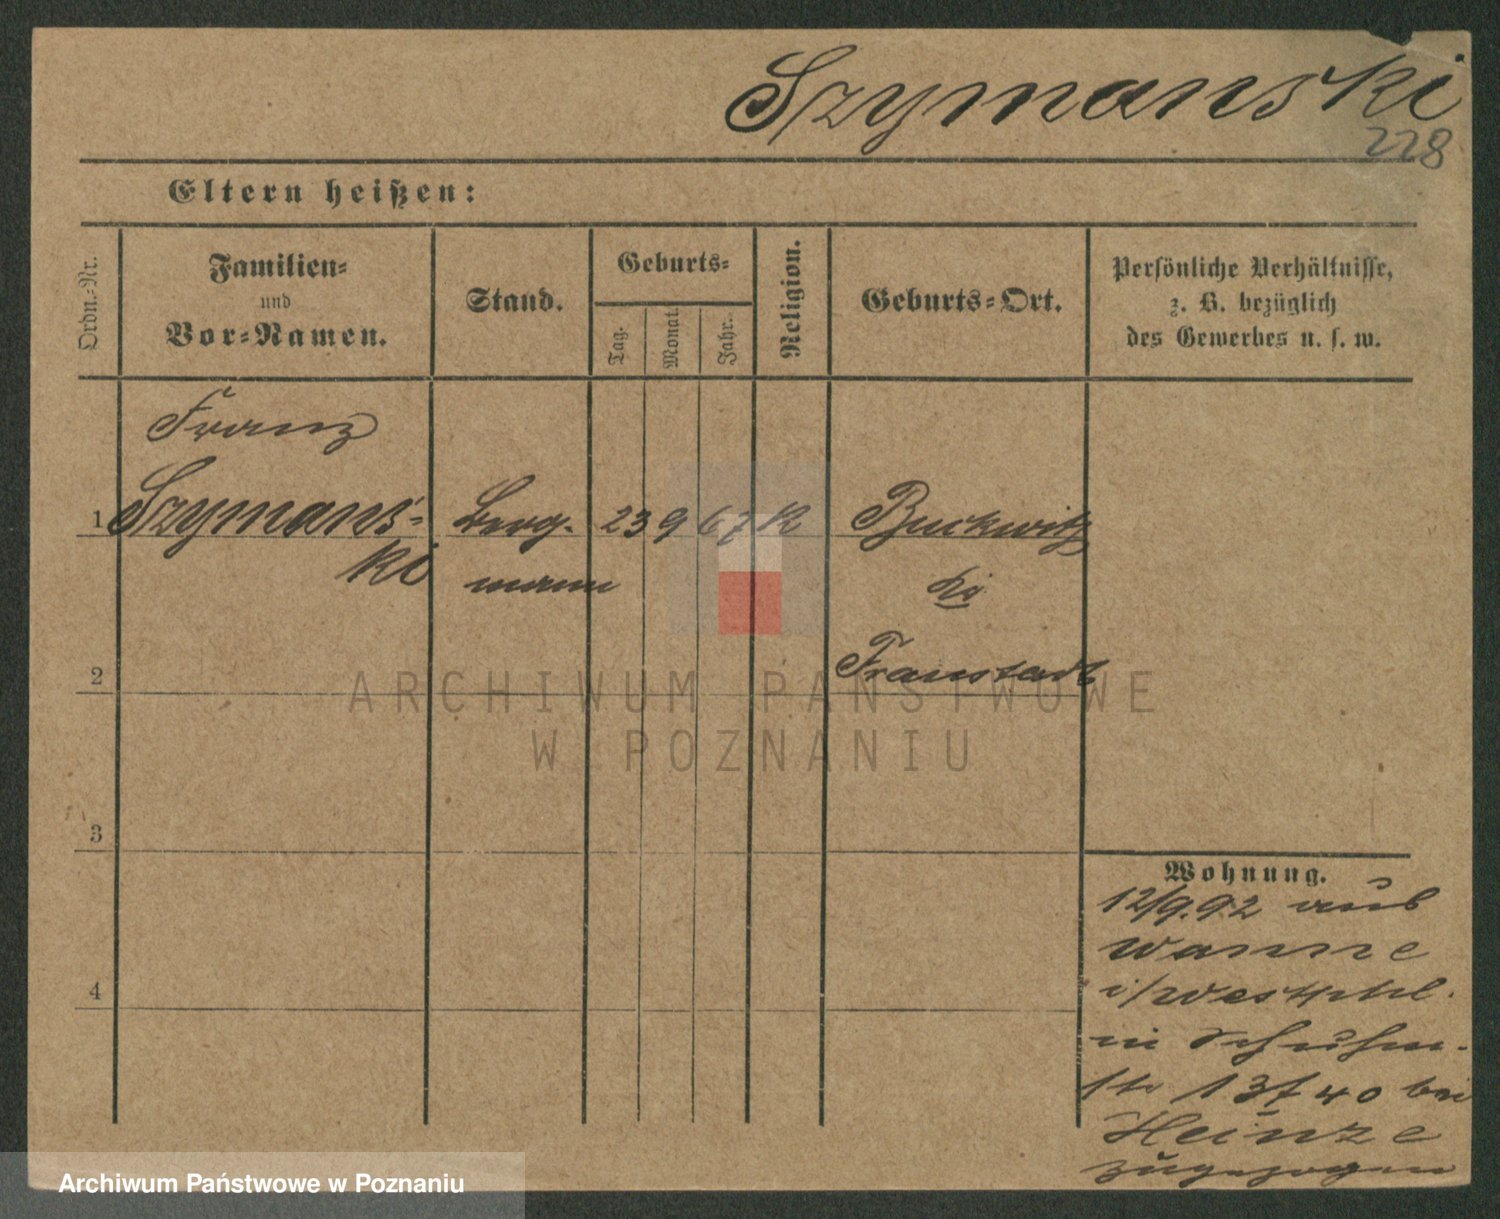 Szymanski
228
Eltern heißen:
Ordn.-Nr.
Familien-
und
Vor-Namen.
Stand.
Geburts-
Tag.
Monat.
Jahr.
Religion.
Geburts-Ort.
Persönliche Verhältnisse,
z. B. bezüglich
des Gewerbes u. s. w.
Franz
1 Szymans- Berg- 23 9 67 K Buckwitz
ki mann
Kr
2 Fraustadt
3
4
Wohnung.
12/9.92 aus
Wanne
i/Westphl.
in Schuhm-
str 13 40 bei
Heinze
zugezogen
ARCHIWUM PAŃSTWOWE
W POZNANIU
Archiwum Państwowe w Poznaniu